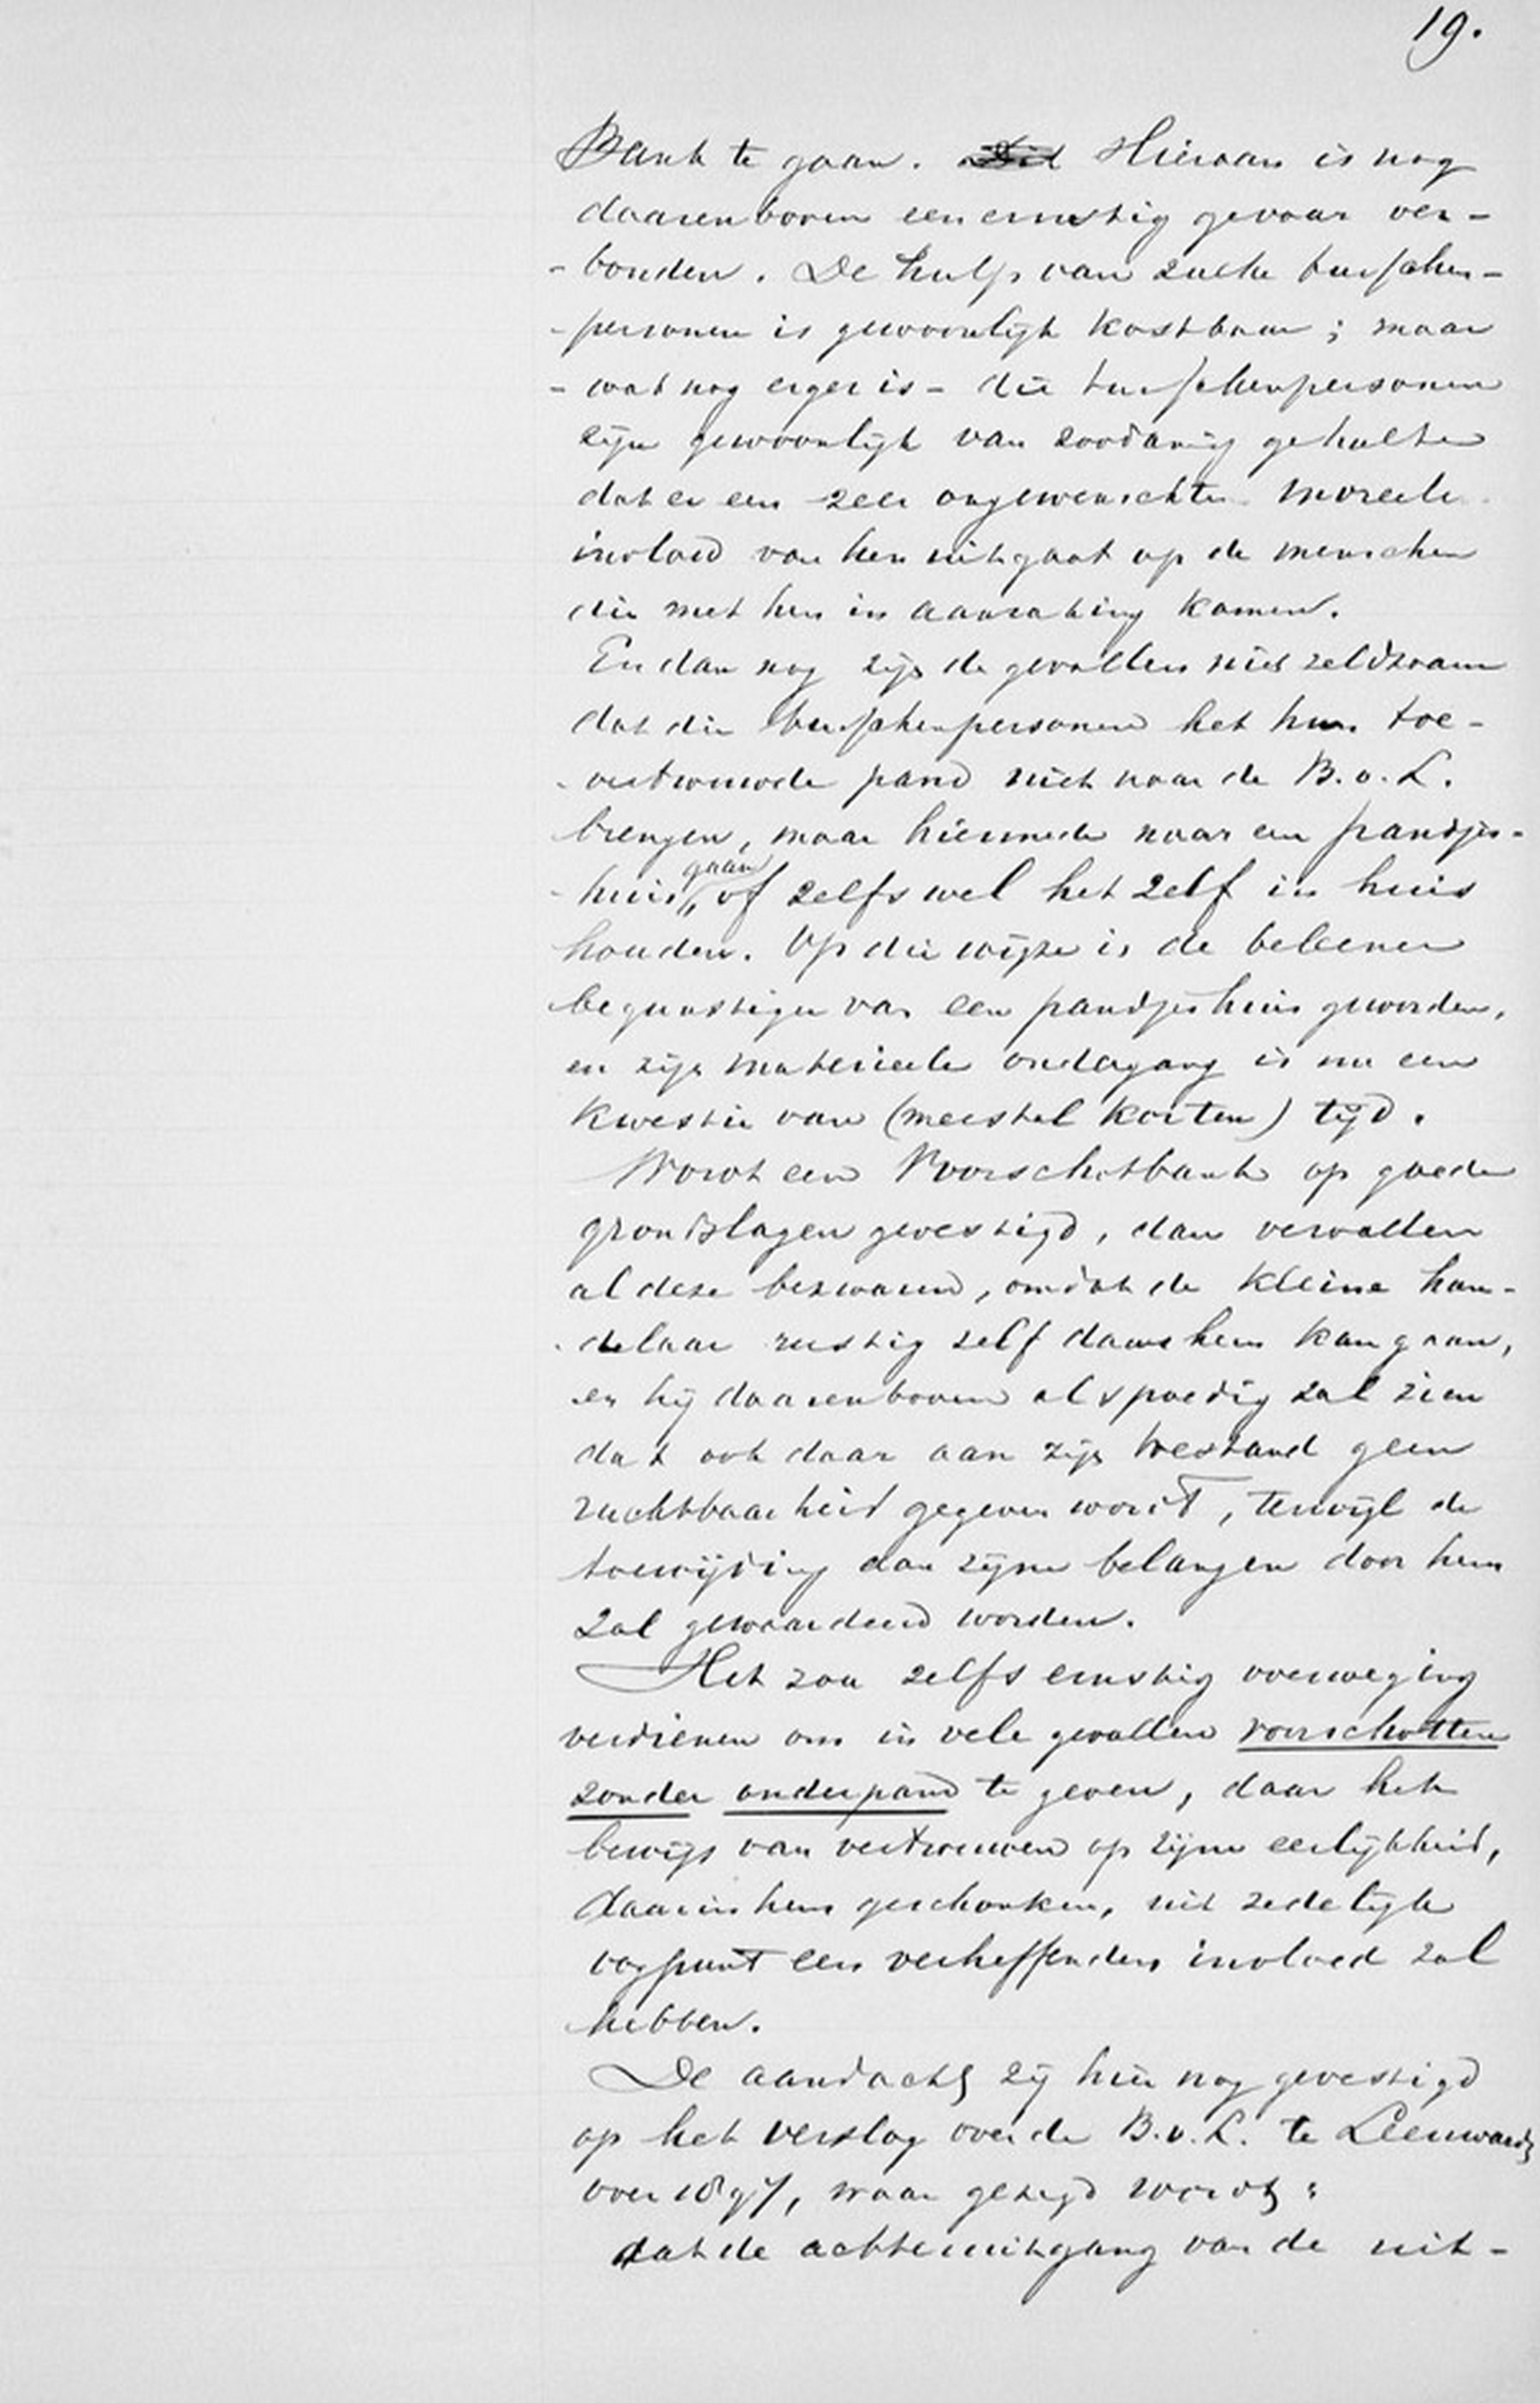 19.
Bank te gaan. Hieraan is nog
daarenboven een ernstig gevaar ver-
- bonden. De hulp van zulke tusschen-
- personen is gewoonlijk kostbaar; maar
- wat nog erger is - die tusschenpersonen
zijn gewoonlijk van zoodanig gehalte
dat er een zeer ongewenschte moreele
invloed van hen uitgaat op de menschen
die met hen in aanraking komen.
En dan nog zijn de gevallen niet zeldzaam
dat die tusschenpersonen het hun toe-
- vertrouwde pand niet naar de B.v.L.
brengen, maar hiermede naar een pandjes-
- huis gaan, of zelfs wel het zelf in huis
houden. Op die wijze is de beleener
begunstiger van een pandjeshuis geworden,
en zijn materieele ondergang is nu een
kwestie van (meestal korten) tijd.
Wordt een Voorschotbank op goede
grondslagen gevestigd, dan vervallen
al deze bezwaren, omdat de kleine han-
- delaar rustig zelf daarheen kan gaan,
en hij daarenboven al spoedig zal zien
dat ook daar aan zijn toestand geen
ruchtbaarheid gegeven wordt, terwijl de
toewijding aan zijne belangen door hem
zal gewaardeerd worden.
Het zou zelfs ernstig overweging
verdienen om in vele gevallen voorschotten
zonder onderpand te geven, daar het
bewijs van vertrouwen op zijne eerlijkheid,
daarin hem geschonken, uit zedelijk
oogpunt een verheffenden invloed zal
hebben.
De aandacht zij hier nog gevestigd
op het verslag over de B.v.L. te Leeuward
over 1897, waar gezegd wordt:
dat de achteruitgang van de uit-